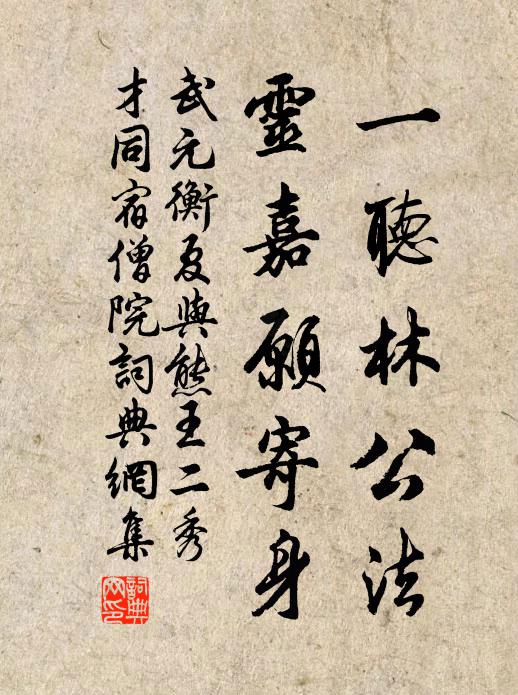 一聽林公法
靈嘉願寄身
武元衡夏與熊王二秀
才同宿僧院詞典網集
詞典
网印